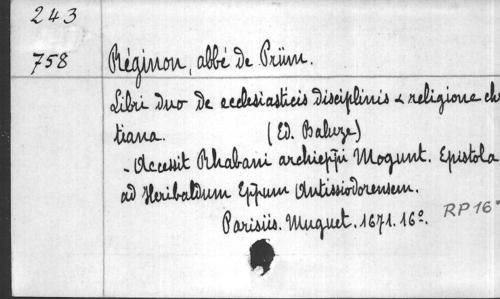 243
758
Réginon, abbé de Prüm.
Libri duo de ecclesiasticis disciplinis & religione chr
tiana. (Ed. Baluze)
- Accessit Rhabani archieppi Mogunt. Epistola
ad Heribaldum Eppum Antissiodorensem.
Parisiis. Muguet. 1671. 16º.
RP 16º